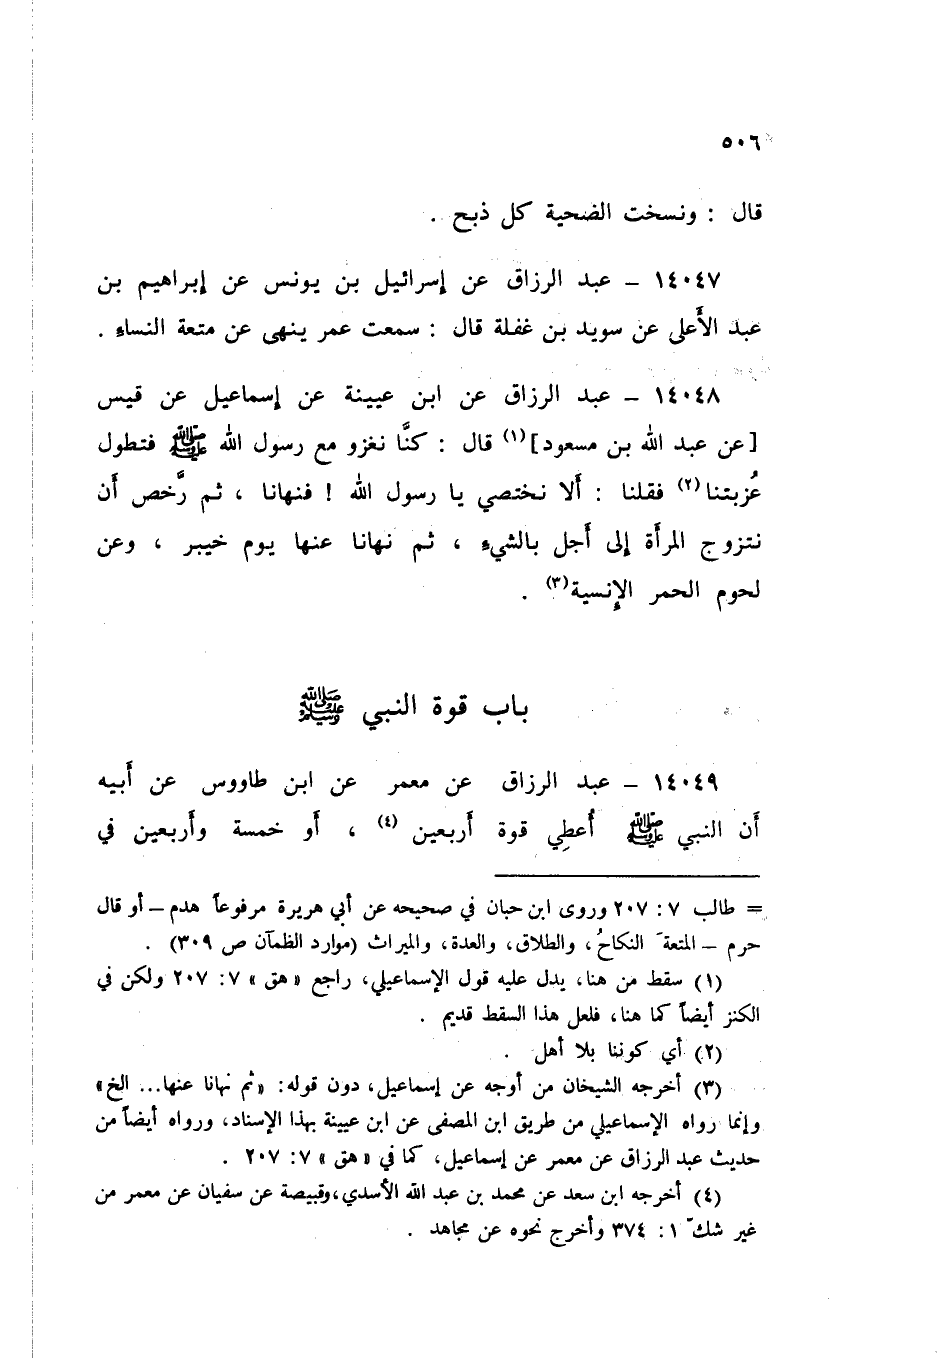 ٥٠٦
قال : ونسخت الضحية كل ذبح .
١٤٠٤٧ – عبد الرزاق عن إسرائيل بن يونس عن إبراهيم بن
عبد الأَعلى عن سويد بن غفلة قال : سمعت عمر ينهى عن متعة النساء .
١٤٠٤٨ – عبد الرزاق عن ابن عيينة عن إسماعيل عن قيس
[عن عبد الله بن مسعود](١) قال : كنَّا نغزو مع رسول الله ﷺ فتطول
عُزبتنا(٢) فقلنا : أَلا نختصي يا رسول الله ! فنهانا ، ثم رَّخص أَن
نتزوج المرأَة إلى أَجل بالشيء ، ثم نهانا عنها يوم خيبر ، وعن
لحوم الحمر الإنسية(٣) .
باب قوة النبي ﷺ
١٤٠٤٩ – عبد الرزاق عن معمر عن ابن طاووس عن أَبيه
أَن النبي ﷺ أُعطِي قوة أَربعين (٤) ، أَو خمسة وأَربعين في
= طالب ٧ : ٢٠٧ وروى ابن حبان في صحيحه عن أبي هريرة مرفوعاً هدم – أو قال
حرم – المتعةَ النكاحُ، والطلاق، والعدة، والميراث (موارد الظمآن ص ٣٠٩) .
(١) سقط من هنا، يدل عليه قول الإسماعيلي، راجع «هق» ٧: ٢٠٧ ولكن في
الكنز أيضاً كما هنا، فلعل هذا السقط قديم .
(٢) أي كوننا بلا أهل .
(٣) أخرجه الشيخان من أوجه عن إسماعيل، دون قوله: «ثم نهانا عنها... الخ»
وإنما رواه الإسماعيلي من طريق ابن المصفى عن ابن عيينة بهذا الإسناد، ورواه أيضاً من
حديث عبد الرزاق عن معمر عن إسماعيل، كما في «هق» ٧: ٢٠٧ .
(٤) أخرجه ابن سعد عن محمد بن عبد الله الأسدي،وقبيصة عن سفيان عن معمر من
غير شكّ ١: ٣٧٤ وأخرج نحوه عن مجاهد .